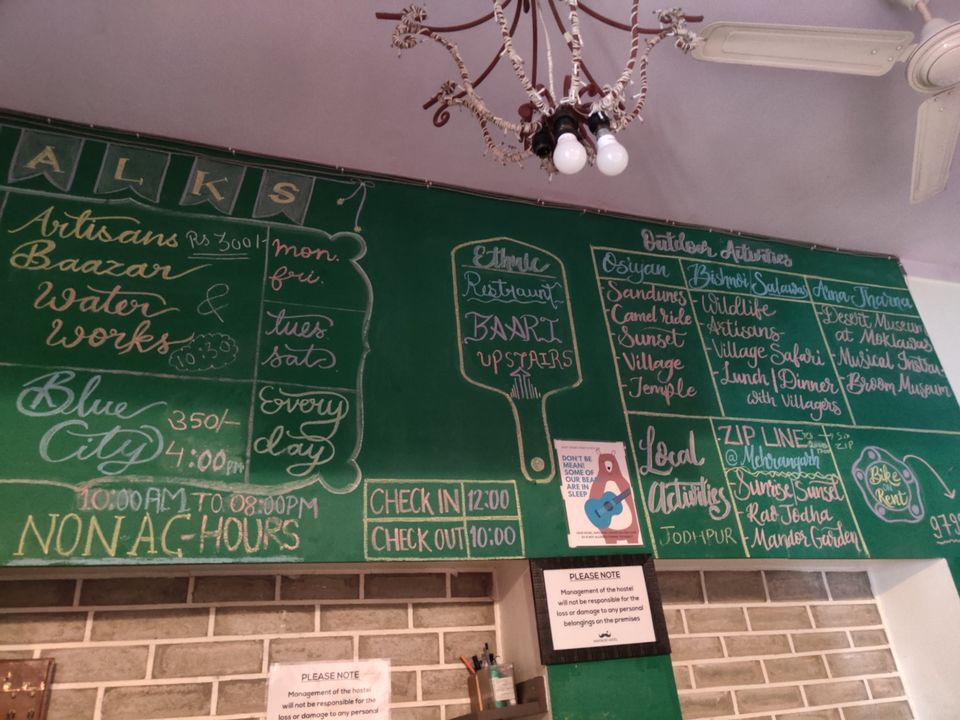 ALKS
Artisans Rs 300/-
Baazar
Water &
Works 10:30
mon.
fri.
tues.
sats.
Blue 350/-
City 4:00pm
Every
day
10:00AM TO 08:00PM
NON AC-HOURS
CHECK IN 12:00
CHECK OUT 10:00
Ethnic
Restraunt
BAARI
UPSTAIRS
DON'T BE
MEAN!
SOME OF
OUR BEA
ARE IN
SLEEP
Outdoor Activities
Osiyan
Sandunes
Camel ride
- Sunset
- Village
- Temple
Bishnoi Salawas
- Wildlife
- Artisans
- Village Safari
- Lunch | Dinner
with Villagers
Arna Jharna
Desert Museum
at Moklawas
- Musical Instru.
- Broom Museum
Local
Activities
JODHPUR
- ZIP LINE
@ Mehrangarh
- Sunrise | Sunset
- Rao Jodha
- Mandor Garden
Bike
Rent
979
PLEASE NOTE
Management of the hostel
will not be responsible for the
loss or damage to any personal
belongings on the premises
PLEASE NOTE
Management of the hostel
will not be responsible for the
loss or damage to any personal